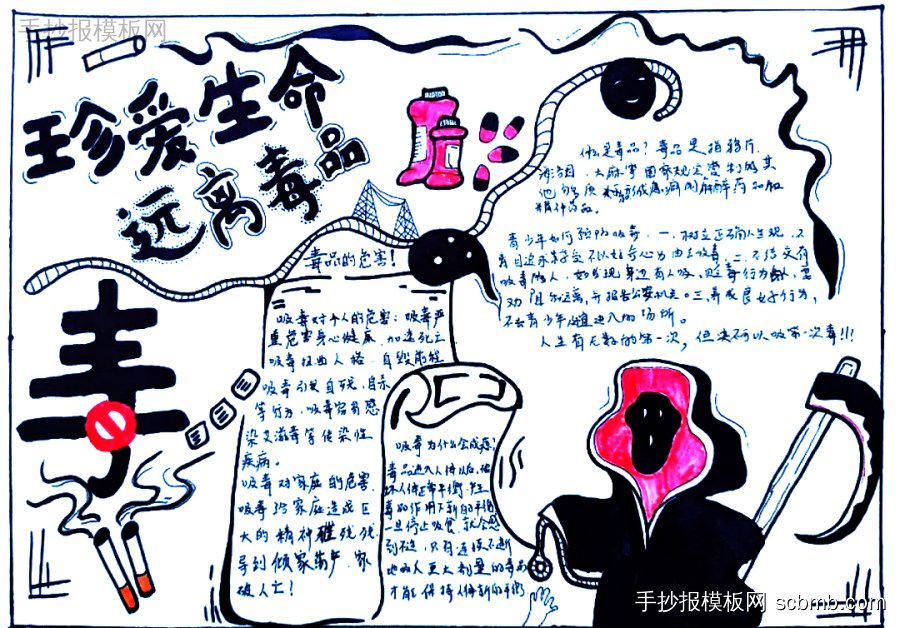 手抄报模板网
珍爱生命
远离毒品
什么是毒品？毒品是指鸦片、
海洛因、大麻等国家规定管制的其
他能够使人形成瘾癖的麻醉药品和
精神药品。
青少年如何预防吸毒：一、树立正确人生观，不
盲目追求享受不以好奇心为由去吸毒。二、不结交有
吸毒的人，如发现身边有人吸、贩毒行为，要
劝阻和远离，并报告公安机关。三、养成良好行为，
不去青少年不宜进入的场所。
人生有无数的第一次，但决不可以吸第一次毒!!!
毒品的危害！
吸毒对个人的危害：吸毒严
重危害身心健康，加速死亡
吸毒扭曲人格，自毁前程
吸毒引发自残，自杀
等行为，吸毒容易感
染艾滋毒等传染性
疾病。
吸毒对家庭的危害
吸毒给家庭造成巨
大的精神摧残
导致倾家荡产、家
破人亡！
毒
吸毒为什么会成瘾？
毒品进入人体以后，破
坏人体正常平衡，在
毒品作用下新的平衡
一旦停止吸食，就会感
到不适，只有连续不断
地吸入更大剂量的毒品
才能保持人体新的平衡
手抄报模板网 scbmb.com